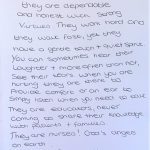 they are dependable
and honest with strong
virtues. They work hard and
they walk fast, yet they
have a gentle touch + quiet spirit.
You can sometimes hear their
laughter + more often than not,
see their tears when you are
hurting. They are there to
provide comfort or an ear to
simply listen when you need to talk.
They are educators, ever
coming to share their knowledge
with patients + families.
They are nurses! God's angels
on earth.